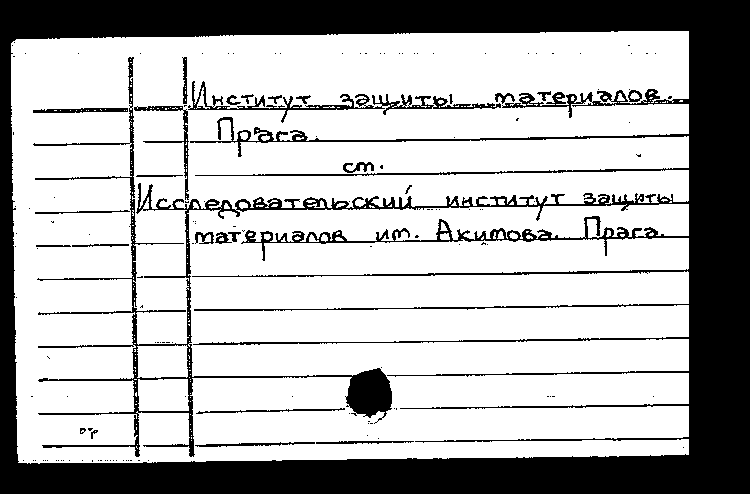 Институт защиты материалов.
Прага.
см.
Исследовательский институт защиты
материалов им. Акимова. Прага.